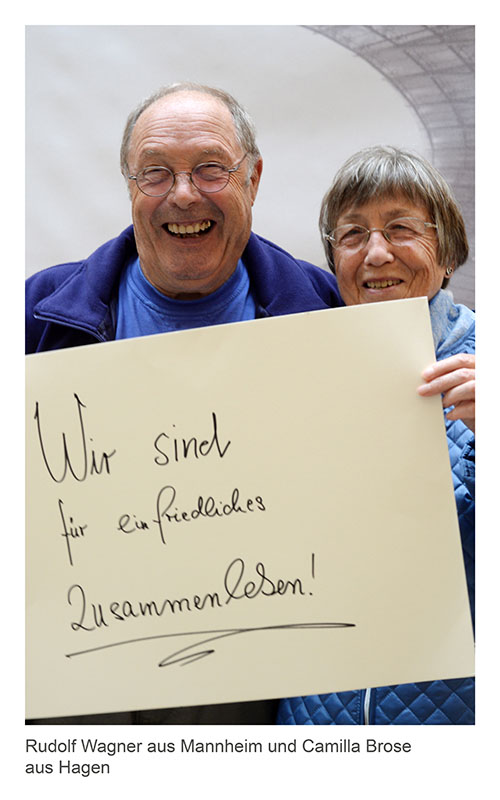 Wir sind
für ein friedliches
Zusammenleben!
Rudolf Wagner aus Mannheim und Camilla Brose
aus Hagen